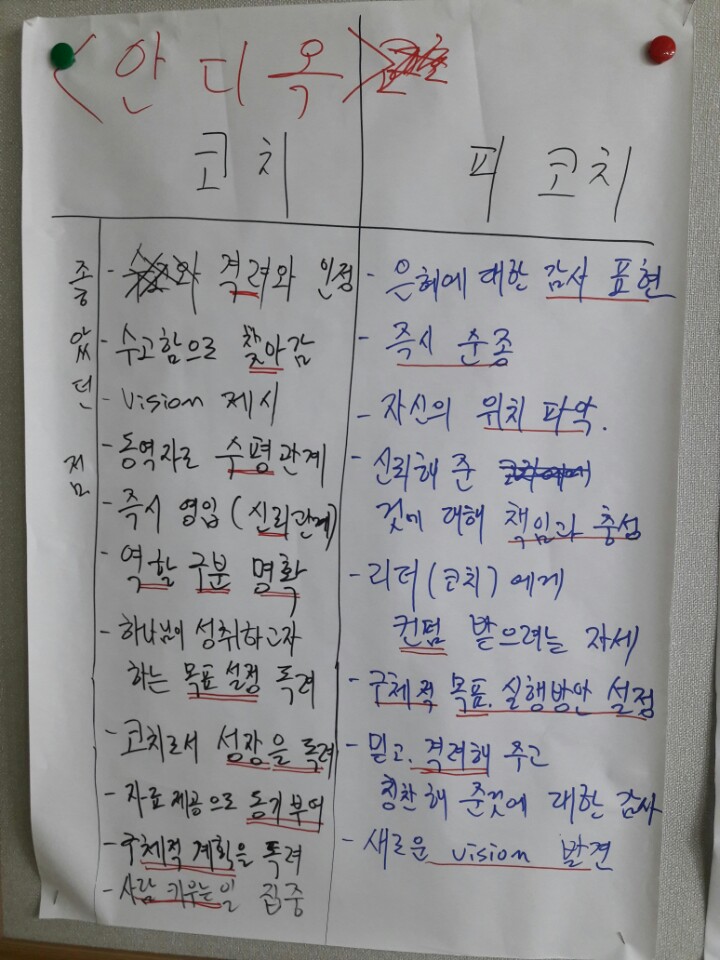 <안디옥>
코치
피코치
좋았던 점
- 격려와 인정
- 수고함으로 찾아감
- Vision 제시
- 동역자로 수평관계
- 즉시 영입 (신뢰관계)
- 역할 구분 명확
- 하나님이 성취하고자
하는 목표 설정 독려
- 코치로서 성장을 독려
- 자료 제공으로 동기부여
- 구체적 계획을 독려
- 사람 키우는일 집중
- 은혜에 대한 감사 표현
- 즉시 순종
- 자신의 위치 파악.
- 신뢰해 준
것에 대해 책임과 충성
- 리더 (코치) 에게
컨펌 받으려는 자세
- 구체적 목표. 실행방안 설정
- 믿고. 격려해 주고
칭찬해 준것에 대한 감사
- 새로운 vision 발견